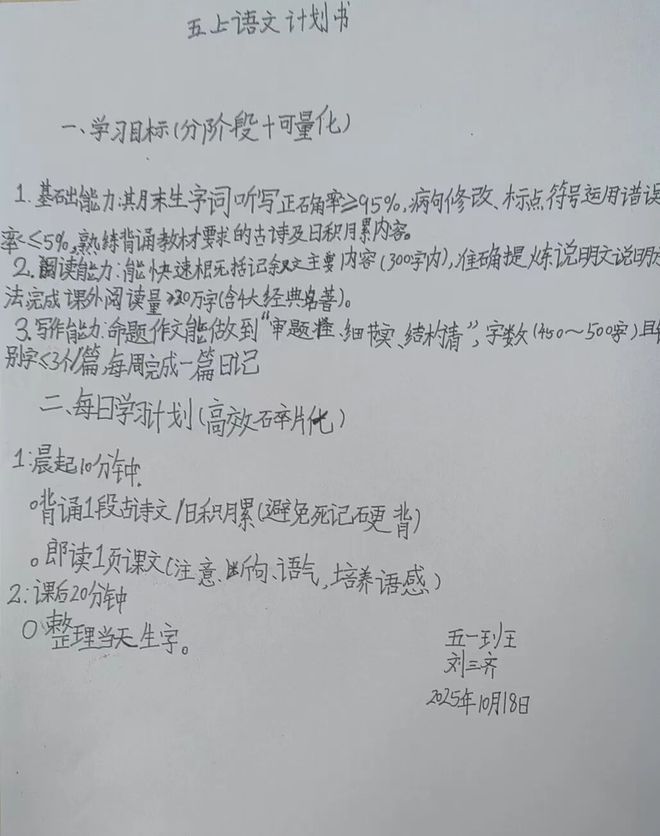 五上语文计划书
一、学习目标(分阶段+可量化)
1.基础能力:其月末生字词听写正确率≥95%,病句修改、标点符号运用错误
率≤5%,熟练背诵教材要求的古诗及日积月累内容。
2.阅读能力:能快速概括记叙文主要内容(300字内),准确提炼说明文说明方
法完成课外阅读量≥30万字(含4大经典名著)。
3.写作能力:命题作文能做到“审题准、细节实、结构清”,字数(450~500字)且错
别字≤3个/篇,每周完成一篇日记
二、每日学习计划(高效碎片化)
1:晨起10分钟.
背诵1段古诗文/日积月累(避免死记硬背)
。郎读1页课文(注意、断句、语气,培养语感)
2:课后20分钟
整理当天生字。
五一班王
刘三齐
2025年10月18日